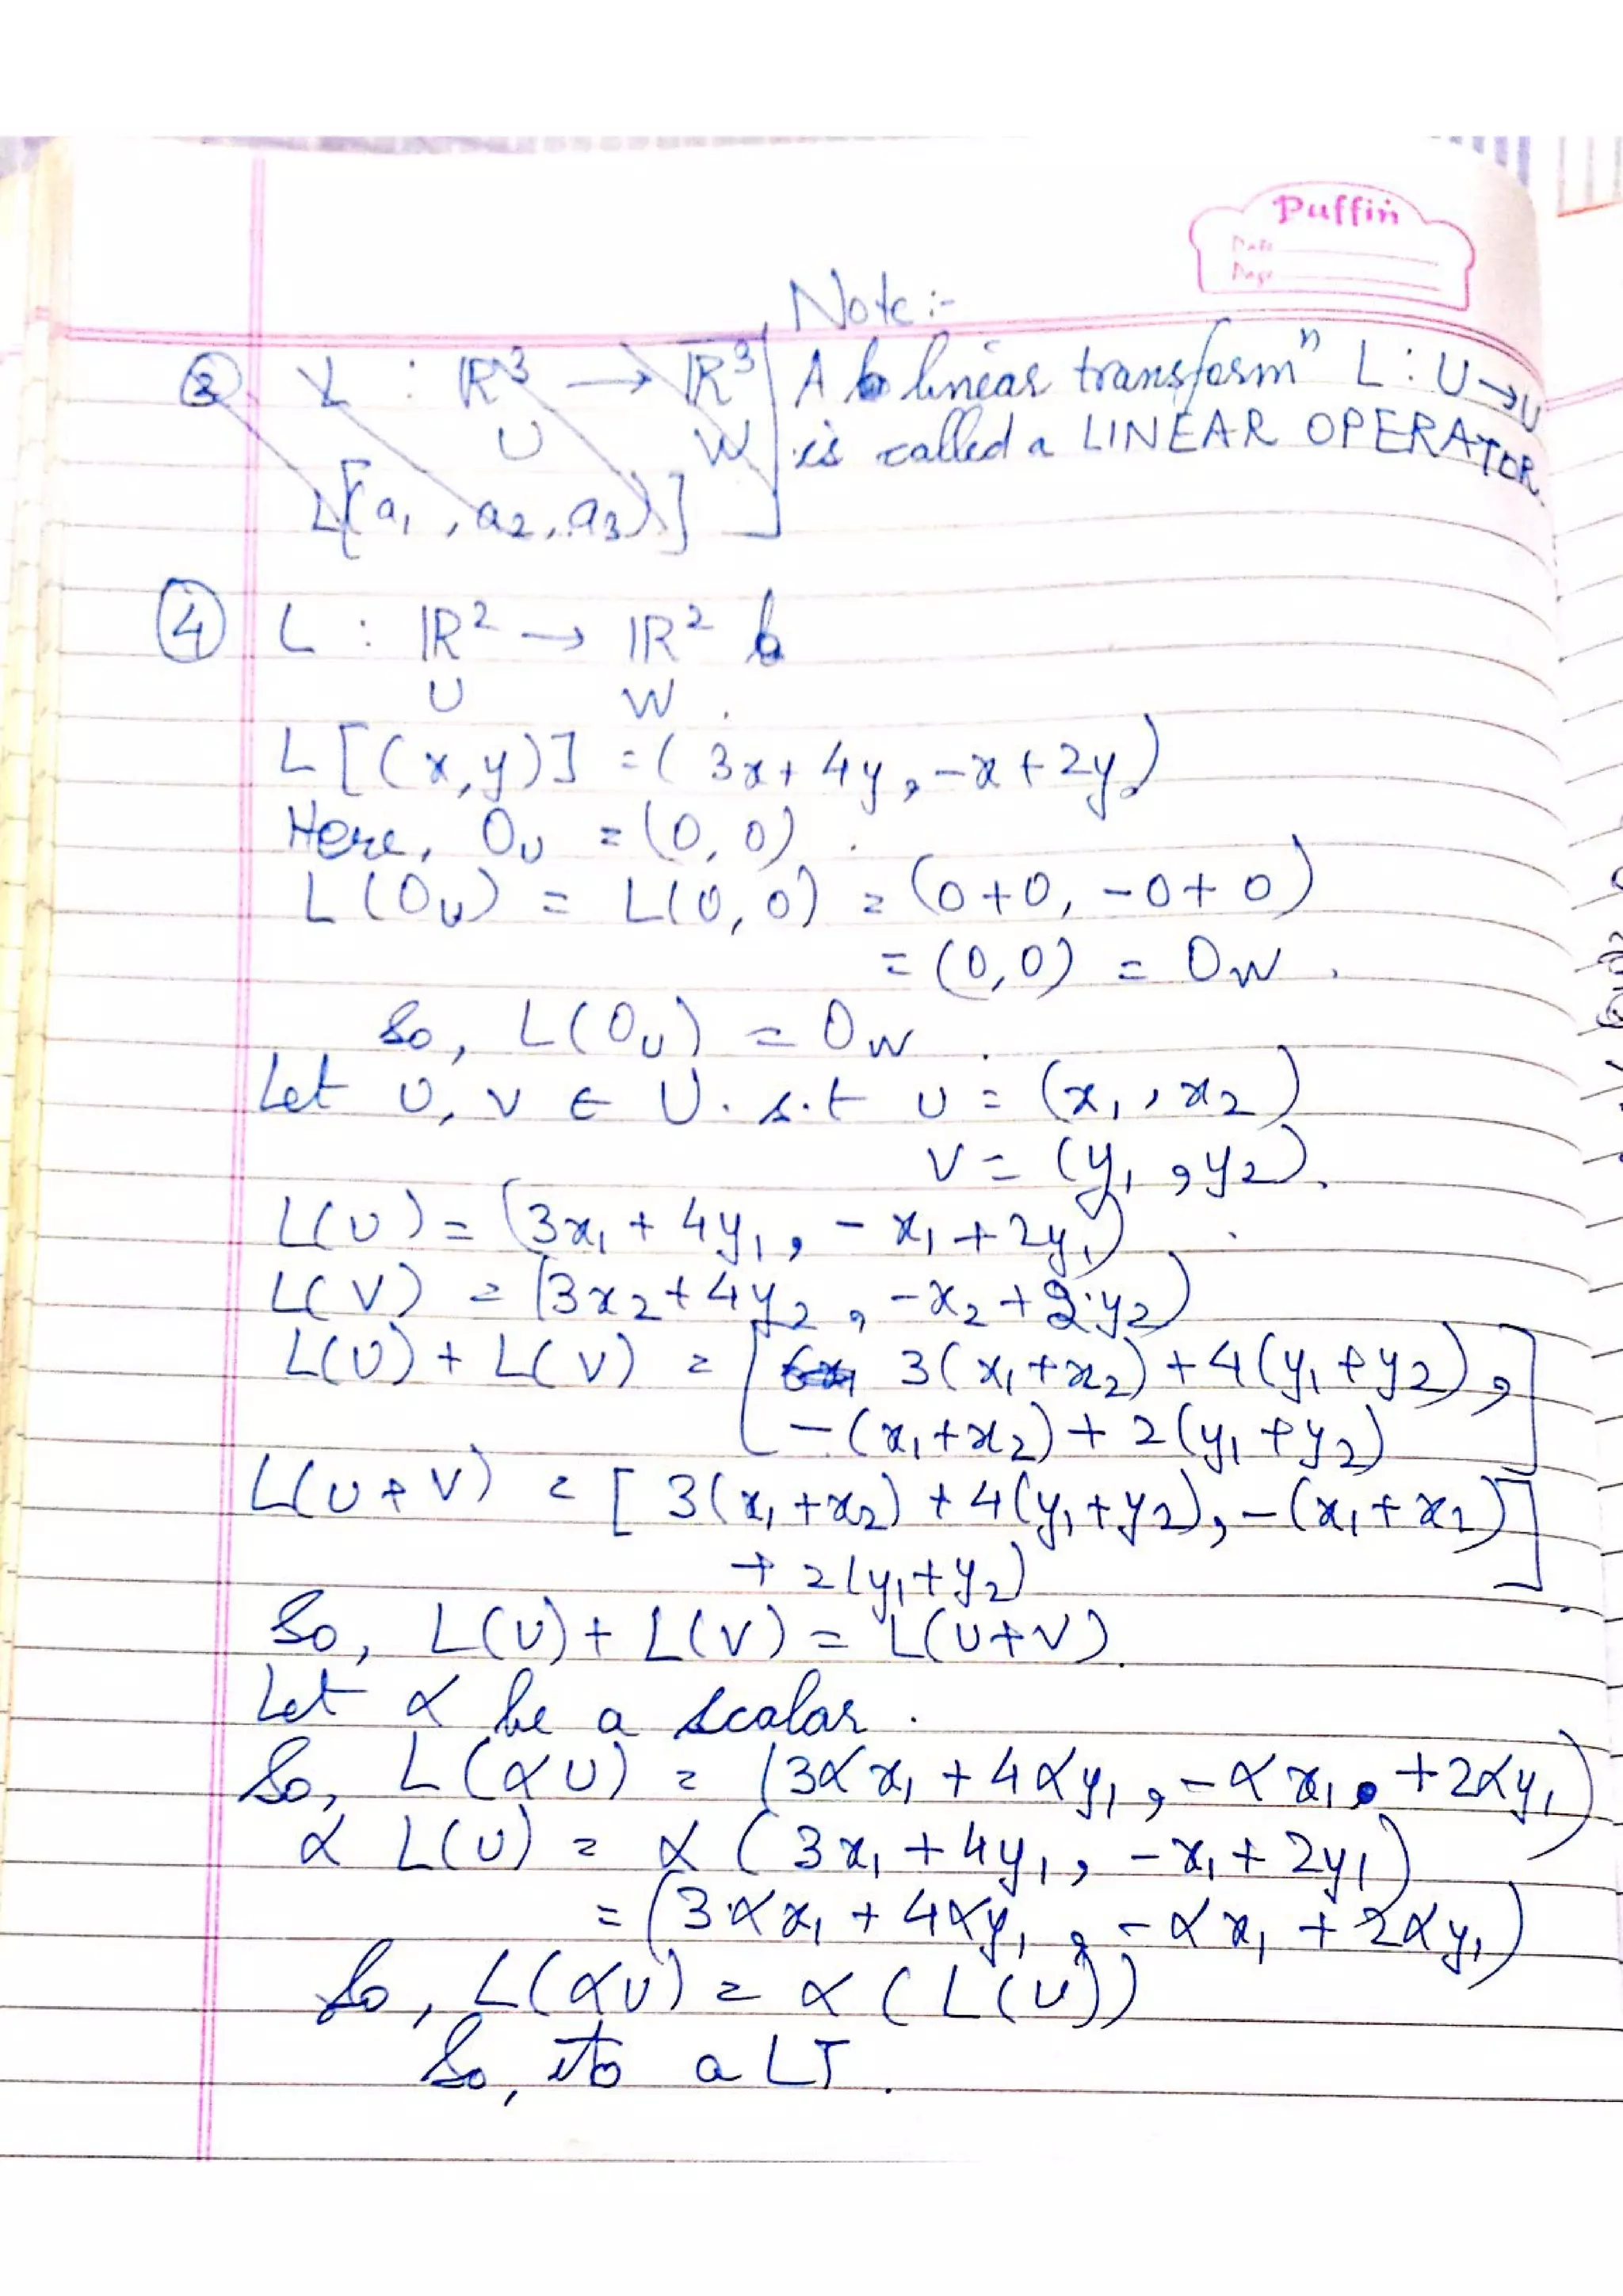 Puffin
Date
Page
Note :-
③ L : ℝ³ → ℝ³
U W
L[(a₁, a₂, a₃)]
A linear transformⁿ L : U→U
is called a LINEAR OPERATOR.
④ L : ℝ² → ℝ²
U W
L[(x,y)] = (3x+4y, -x+2y)
Here, 0ᵤ = (0,0).
L(0ᵤ) = L(0,0) = (0+0, -0+0)
= (0,0) = 0w.
So, L(0ᵤ) = 0w.
Let u, v ∈ U. s.t u = (x₁, x₂)
v = (y₁, y₂).
L(u) = (3x₁ + 4y₁, -x₁ + 2y₁)
L(v) = (3x₂ + 4y₂, -x₂ + 2y₂)
L(u) + L(v) = [3(x₁+x₂) + 4(y₁+y₂),
-(x₁+x₂) + 2(y₁+y₂)]
L(u+v) = [3(x₁+x₂) + 4(y₁+y₂), -(x₁+x₂)
+ 2(y₁+y₂)]
So, L(u) + L(v) = L(u+v).
Let α be a scalar.
So, L(αu) = (3αx₁ + 4αy₁, -αx₁ + 2αy₁)
α L(u) = α (3x₁ + 4y₁, -x₁ + 2y₁)
= (3αx₁ + 4αy₁, -αx₁ + 2αy₁)
So, L(αu) = α (L(u))
So, its a LT.